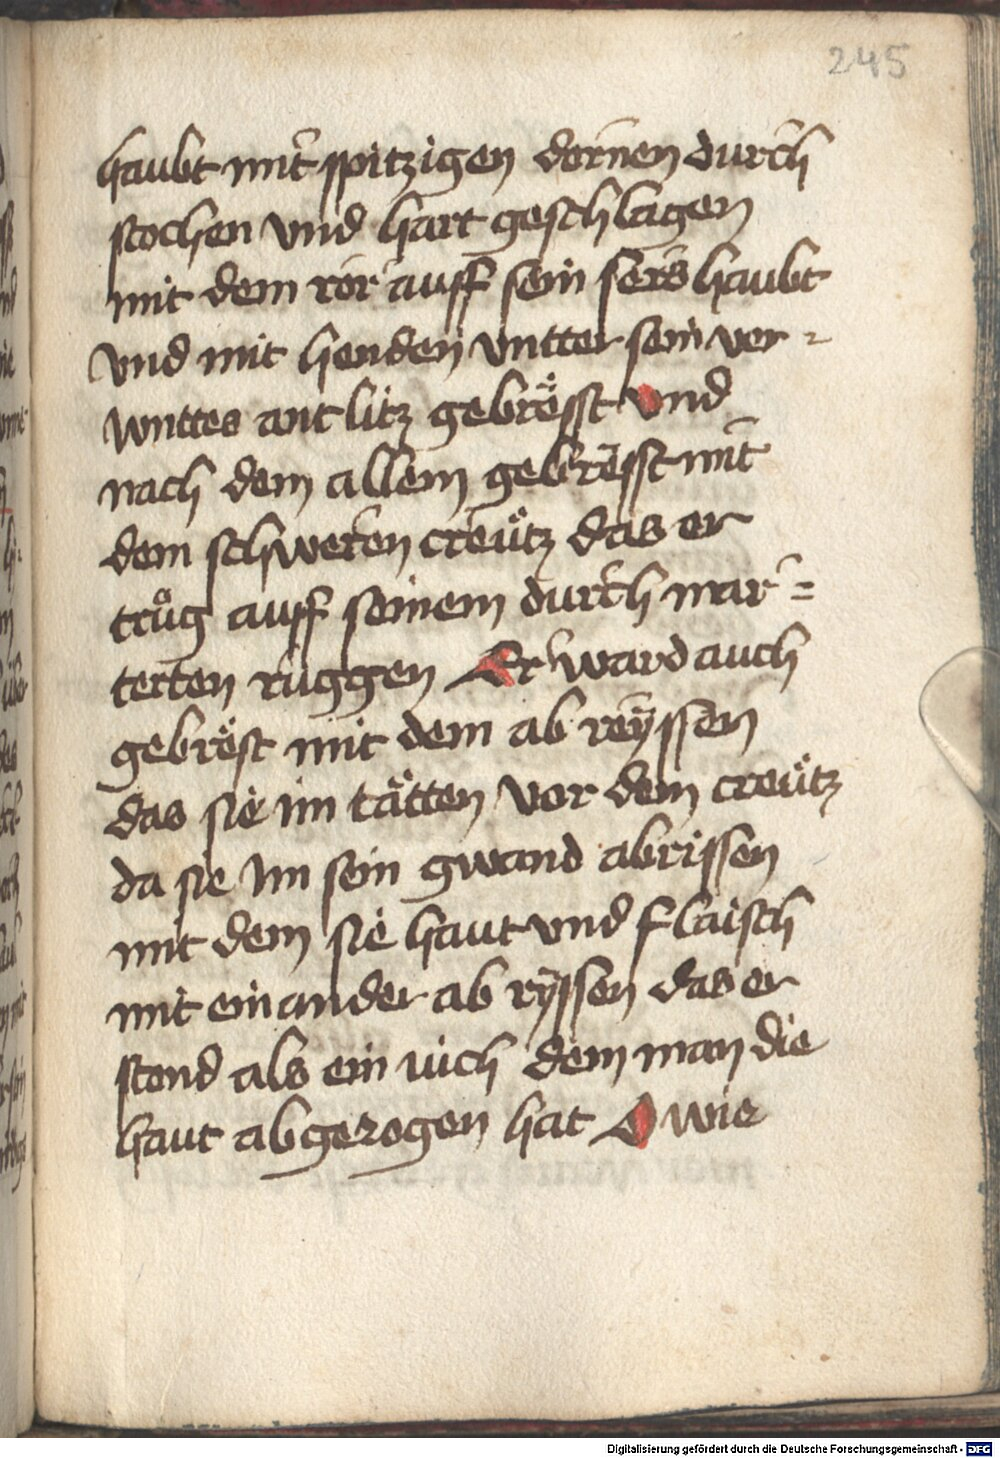 245
haubt mit spitzigen dornen durch
stochen vnd hart geschlagen
mit dem ror auff sein sers haubt
vnd mit henden vntter sein ver=
wuttes antlitz gebrösst vnd
nach dem allem gebresst mit
dem schweren creütz das er
trůg auff seinem durch mar=
terten ruggen Er ward auch
gebröst mit dem ab reyssen
das sie im tätten vor dem creütz
da sie Im sein gwand abrissen
mit dem sie haut vnd flaisch
mit einander ab ryssen das er
stond als ein uich dem man die
haut abgezogen hat O wie
Digitalisierung gefördert durch die Deutsche Forschungsgemeinschaft - DFG